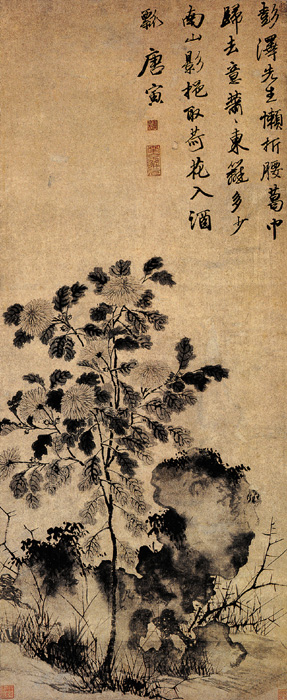 彭澤先生懶折腰葛巾
歸去意蕭々東籬多少
南山影挹取花入酒
瓢
唐寅